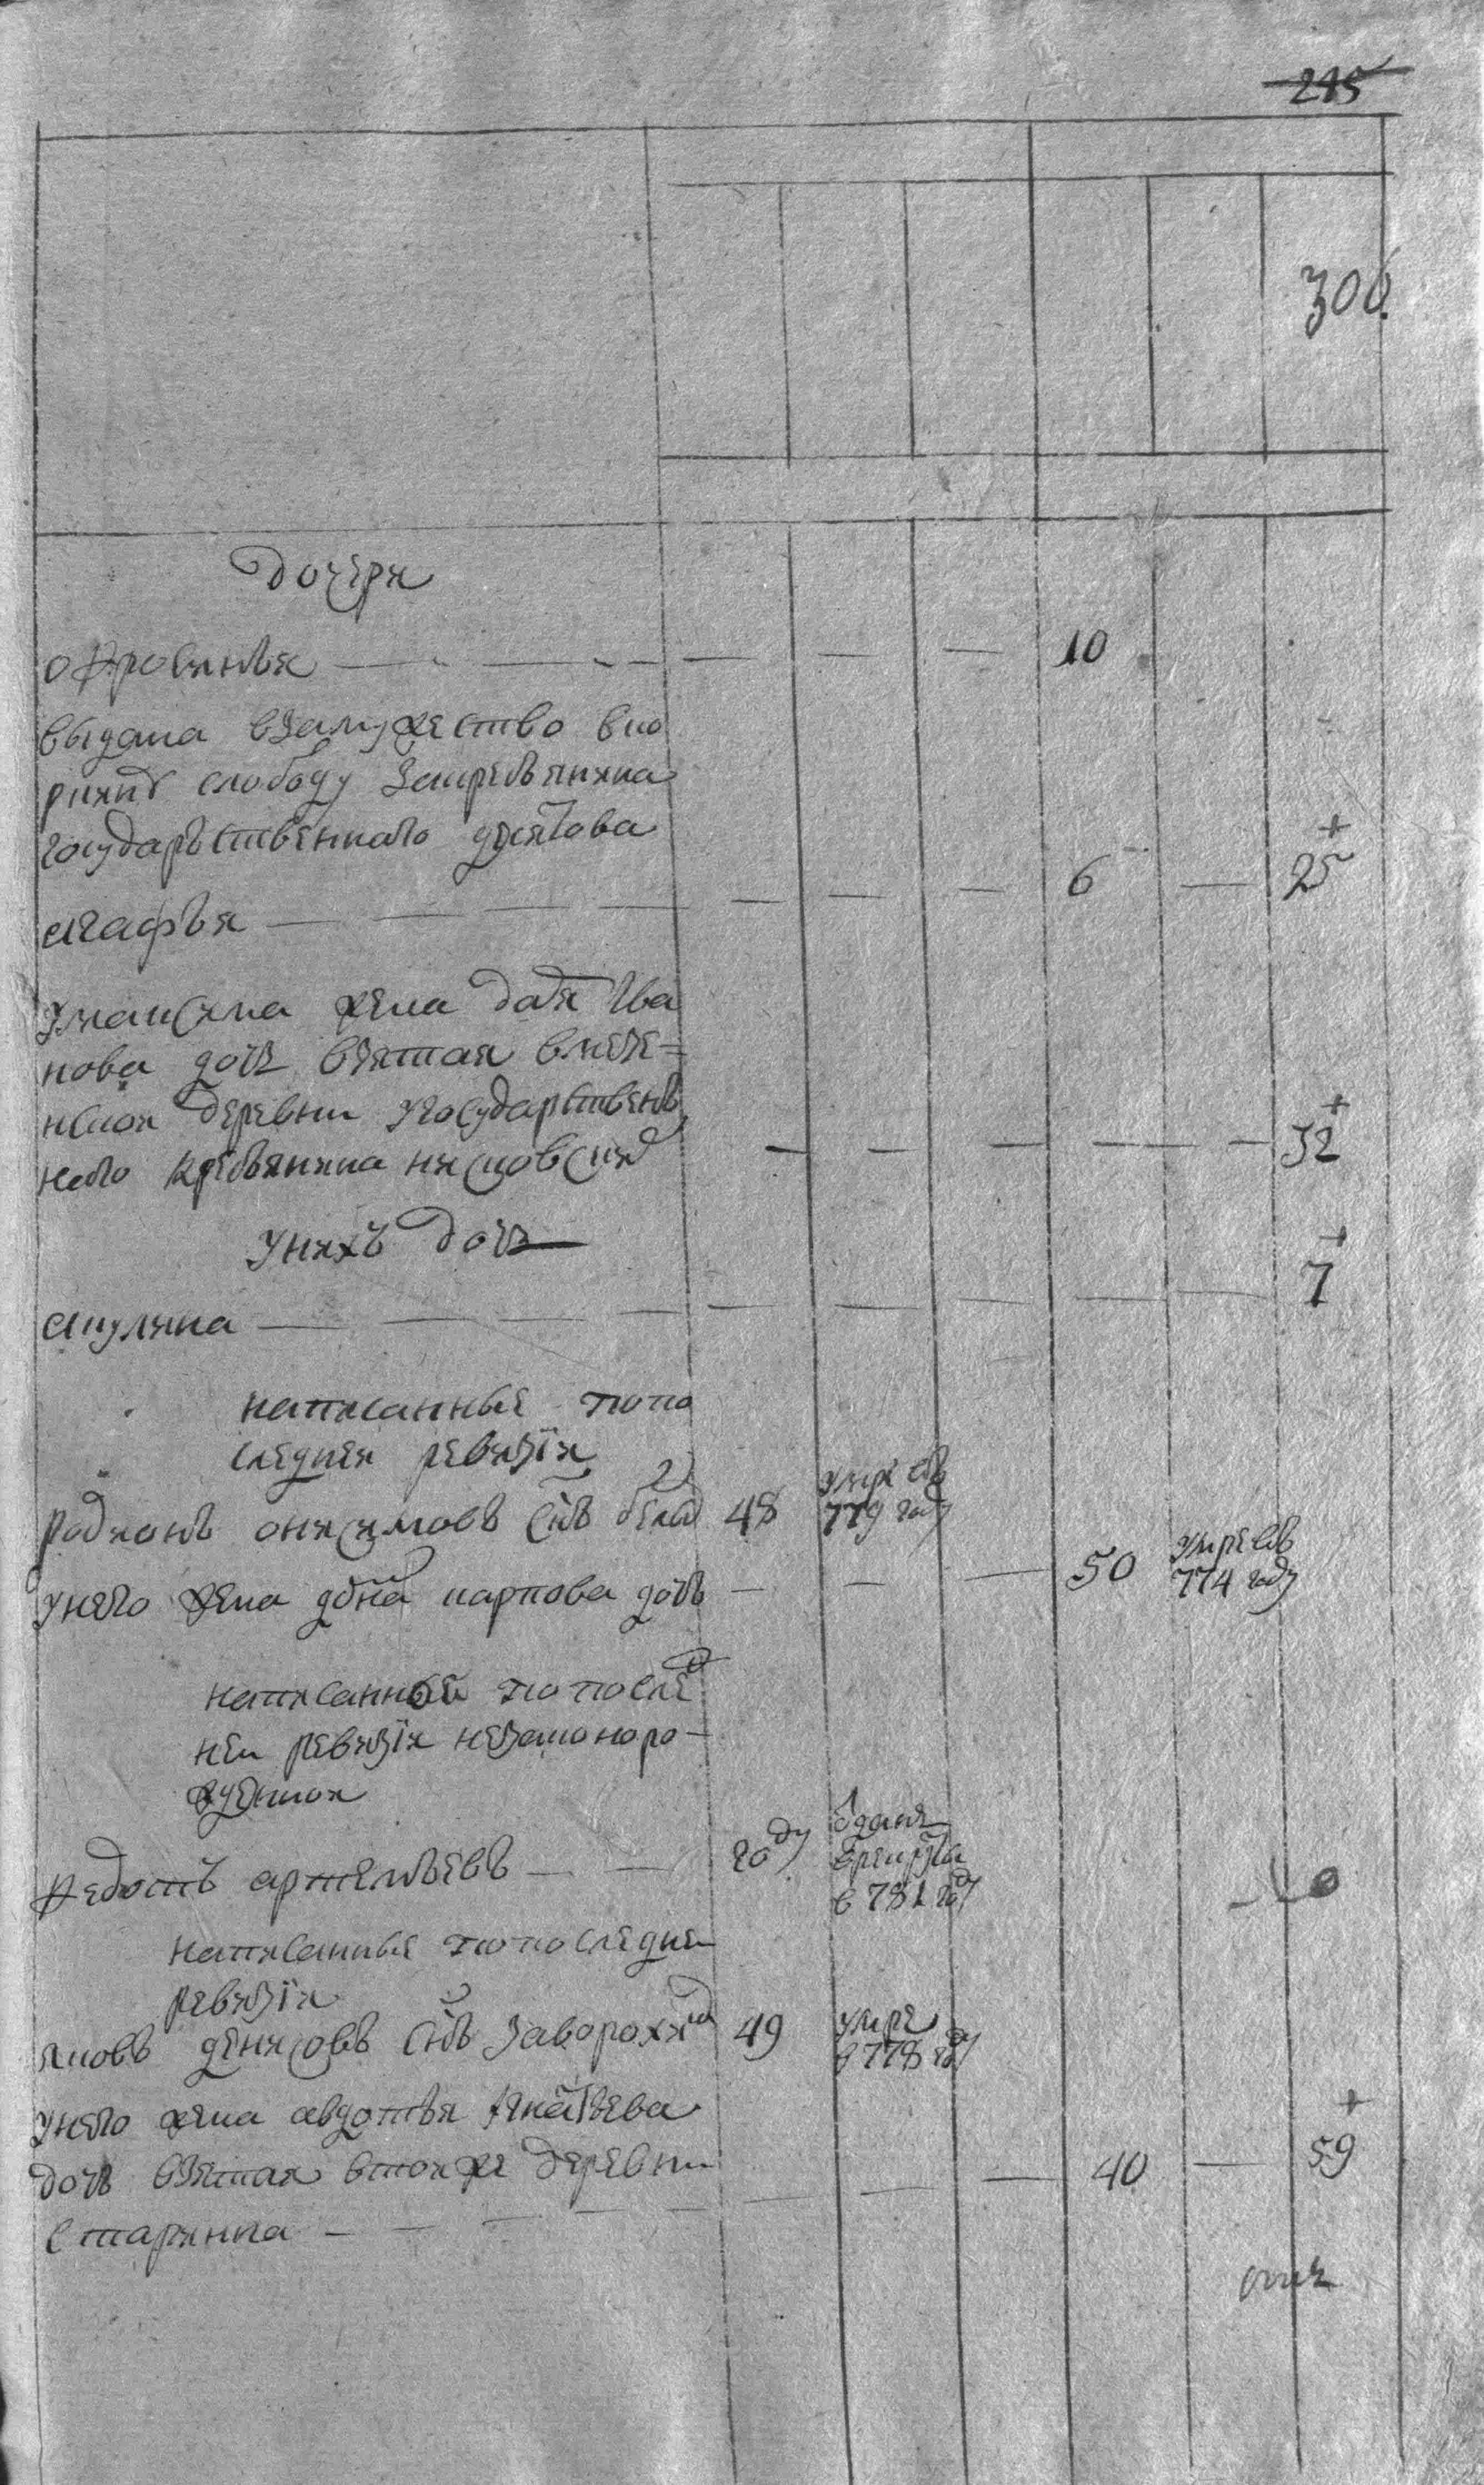 215
306.
дочери
офросинья 10
выдана взамужество вио
слободу закресьянина
государственнаго
агафья 6 25
умаксима жена дарья ива
нова дочь взятая
деревни угосударственъ
наго кресьянина 32
унихъ дочь
акулина 7
написанные попо
следнеи ревизiи
родионъ онисимовъ снъ белы 48 умре въ 779 году
унего жена домна карпова дочь 50 умре въ 774 году
написанной попослед
неи ревизiи незаконоро
жденнои
федотъ артемьевъ году отданъ врекруты в 781 году
написанные попоследнеи
ревизiи
яковъ денисовъ снъ заворохи 49 умре в 778 году
унего жена авдотья игнатьева
дочь взятая втои же деревни 40 59
старинна